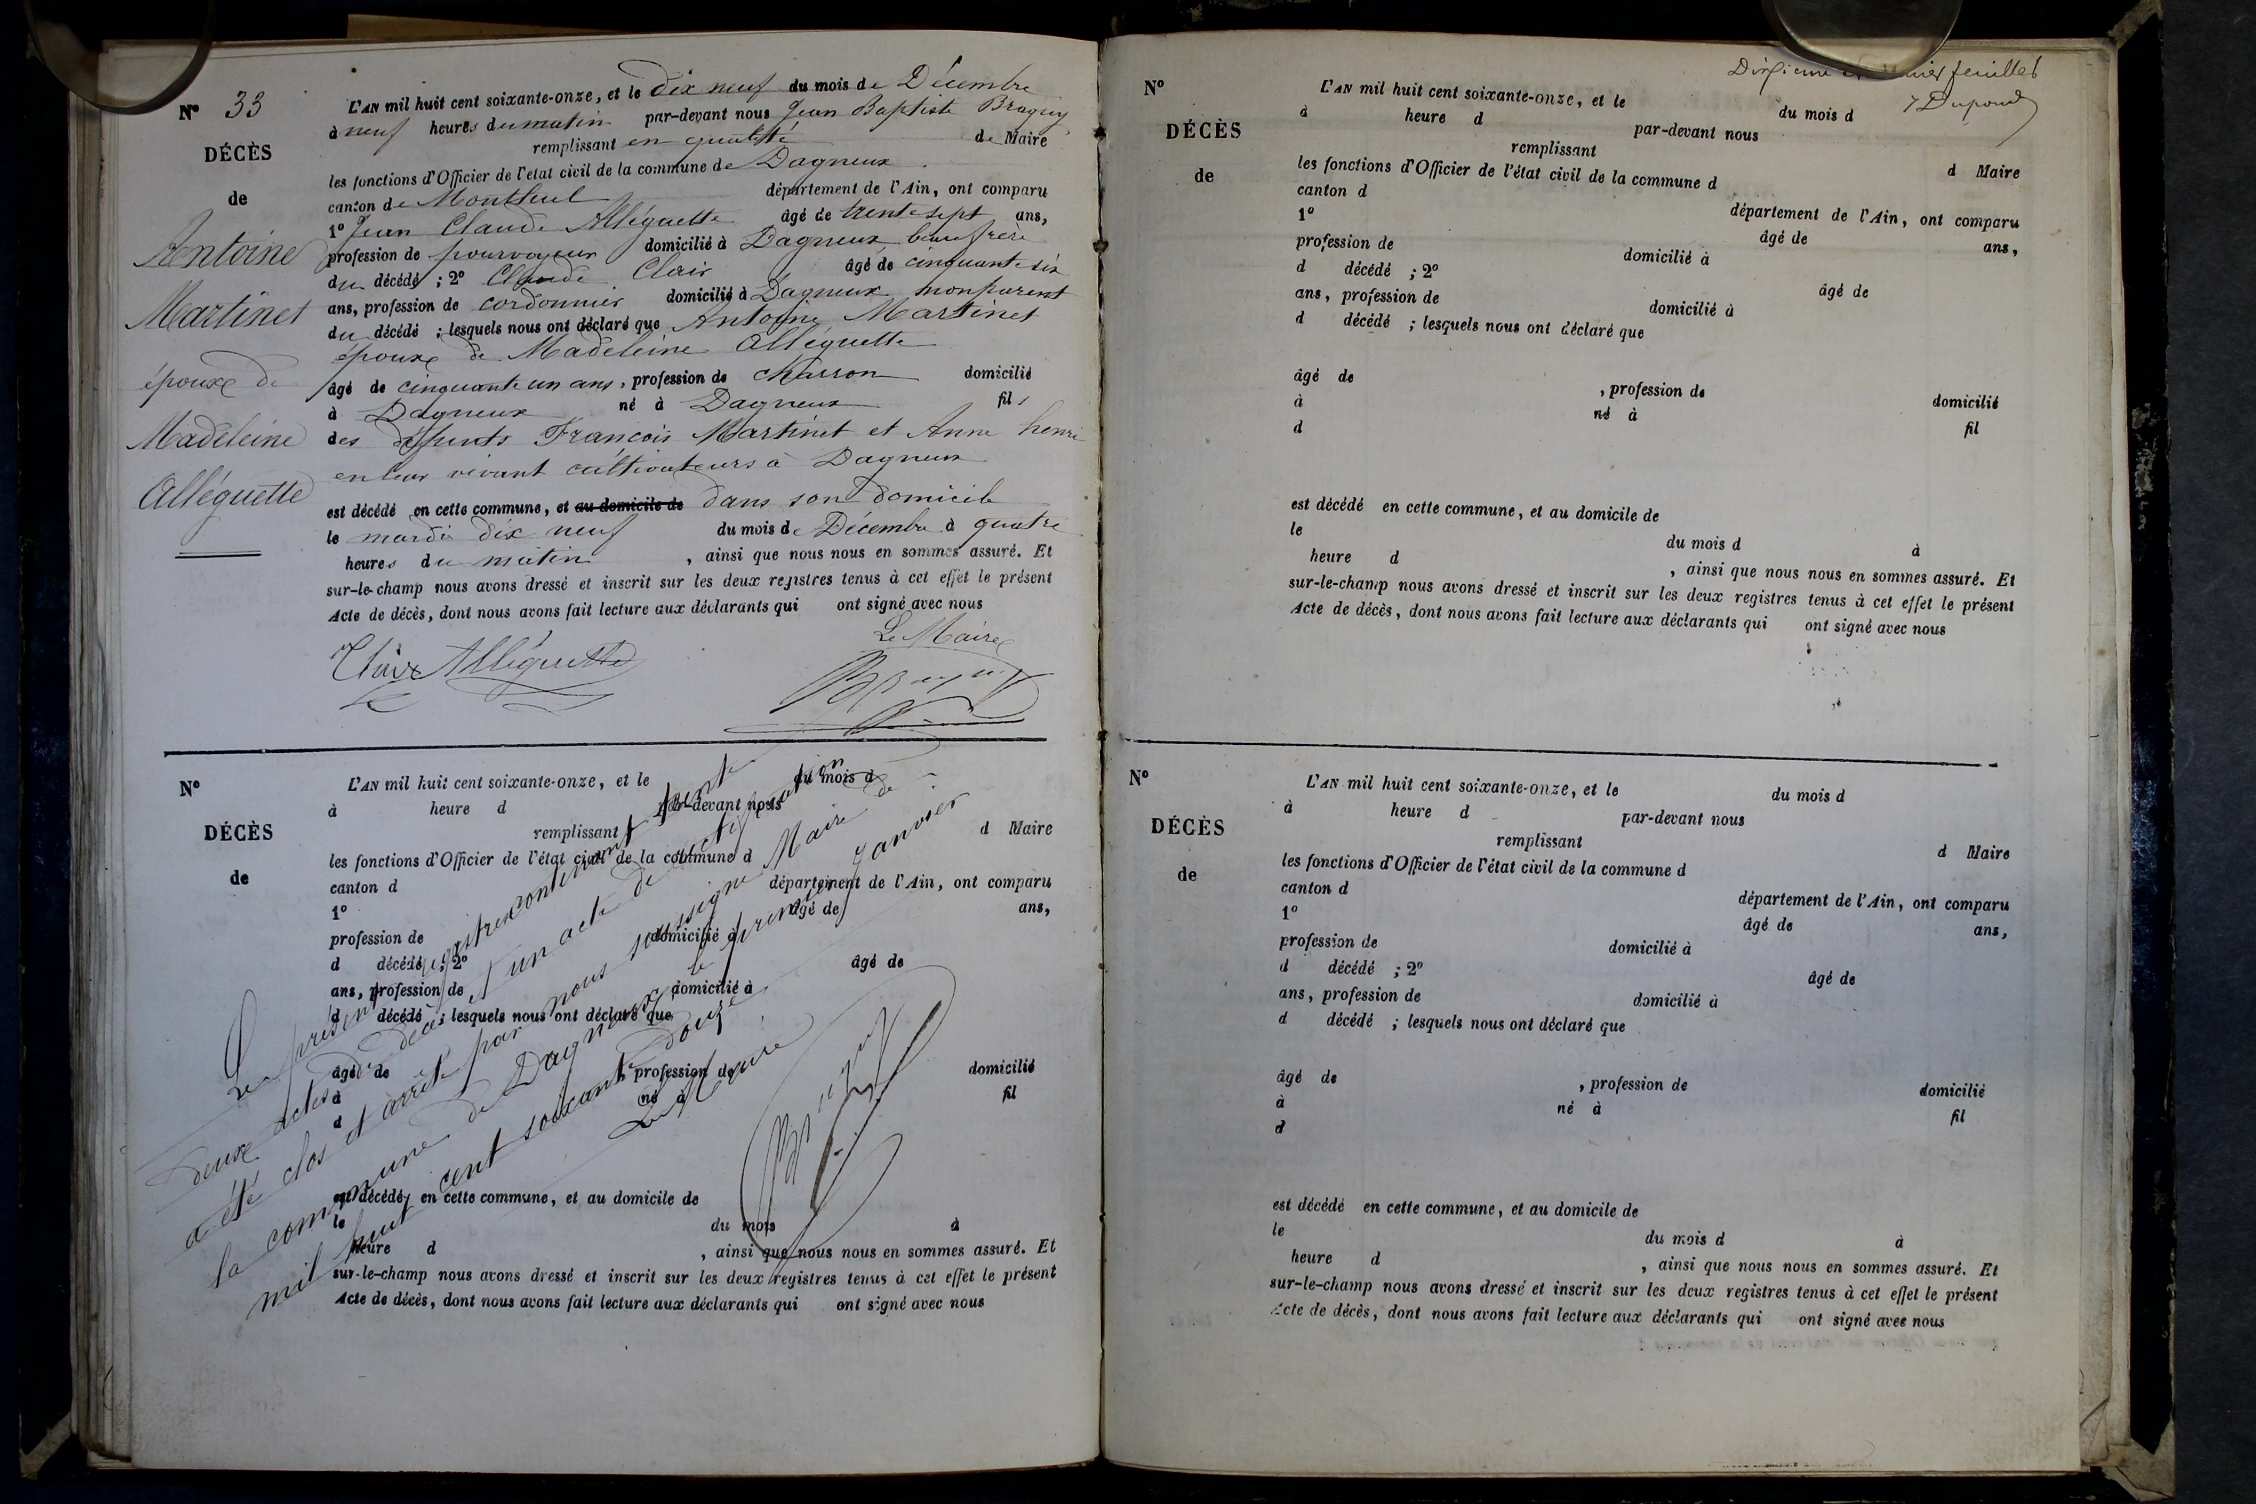 Nº 33
DÉCÈS
de
Antoine
Martinet
époux de
Madeleine
Alléguette
L'AN mil huit cent soixante-onze, et le dix neuf du mois de Décembre
à neuf heures du matin par-devant nous Jean Baptiste Braguy
remplissant en qualité de Maire
les fonctions d'Officier de l'état civil de la commune de Dagneux
canton de Montluel département de l'Ain, ont comparu
1º Jean Claude Alléguette âgé de trente sept ans,
profession de pourvoyeur domicilié à Dagneux beaufrère
du décédé ; 2º Claude Clair âgé de cinquante six
ans, profession de cordonnier domicilié à Dagneux nonparent
du décédé ; lesquels nous ont déclaré que Antoine Martinet
époux de Madeleine Alléguette
âgé de cinquante un ans, profession de charron domicilié
à Dagneux né à Dagneux fils
des défunts François Martinet et Anne henri
en leur vivant cultivateurs à Dagneux
est décédé en cette commune, et au domicile de dans son domicile
le mardi dix neuf du mois de Décembre à quatre
heures du matin, ainsi que nous nous en sommes assuré. Et
sur-le-champ nous avons dressé et inscrit sur les deux registres tenus à cet effet le présent
Acte de décès, dont nous avons fait lecture aux déclarants qui ont signé avec nous
Le Maire
Clair Alléguette
Nº
DÉCÈS
de
L'AN mil huit cent soixante-onze, et le du mois d
à heure d par-devant nous
remplissant d Maire
les fonctions d'Officier de l'état civil de la commune d
canton d département de l'Ain, ont comparu
1º âgé de ans,
profession de domicilié à
d décédé ; 2º âgé de
ans, profession de domicilié à
d décédé ; lesquels nous ont déclaré que
âgé de , profession de domicilié
à né à fil
d
est décédé en cette commune, et au domicile de
le du mois à
heure d , ainsi que nous nous en sommes assuré. Et
sur-le-champ nous avons dressé et inscrit sur les deux registres tenus à cet effet le présent
Acte de décès, dont nous avons fait lecture aux déclarants qui ont signé avec nous
Le présent registre contenant trente
deux actes de décès et un acte de rectification
a été clos et arrêté par nous soussigné Maire de
la commune de Dagneux, le premier Janvier
mil huit cent soixante douze
Le Maire
feuillet
Dupond
Nº
DÉCÈS
de
L'AN mil huit cent soixante-onze, et le du mois d
à heure d par-devant nous
remplissant d Maire
les fonctions d'Officier de l'état civil de la commune d
canton d département de l'Ain, ont comparu
1º âgé de ans,
profession de domicilié à
d décédé ; 2º âgé de
ans, profession de domicilié à
d décédé ; lesquels nous ont déclaré que
âgé de , profession de domicilié
à né à fil
d
est décédé en cette commune, et au domicile de
le du mois d à
heure d , ainsi que nous nous en sommes assuré. Et
sur-le-champ nous avons dressé et inscrit sur les deux registres tenus à cet effet le présent
Acte de décès, dont nous avons fait lecture aux déclarants qui ont signé avec nous
Nº
DÉCÈS
de
L'AN mil huit cent soixante-onze, et le du mois d
à heure d par-devant nous
remplissant d Maire
les fonctions d'Officier de l'état civil de la commune d
canton d département de l'Ain, ont comparu
1º âgé de ans,
profession de domicilié à
d décédé ; 2º âgé de
ans, profession de domicilié à
d décédé ; lesquels nous ont déclaré que
âgé de , profession de domicilié
à né à fil
d
est décédé en cette commune, et au domicile de
le du mois d à
heure d , ainsi que nous nous en sommes assuré. Et
sur-le-champ nous avons dressé et inscrit sur les deux registres tenus à cet effet le présent
Acte de décès, dont nous avons fait lecture aux déclarants qui ont signé avec nous